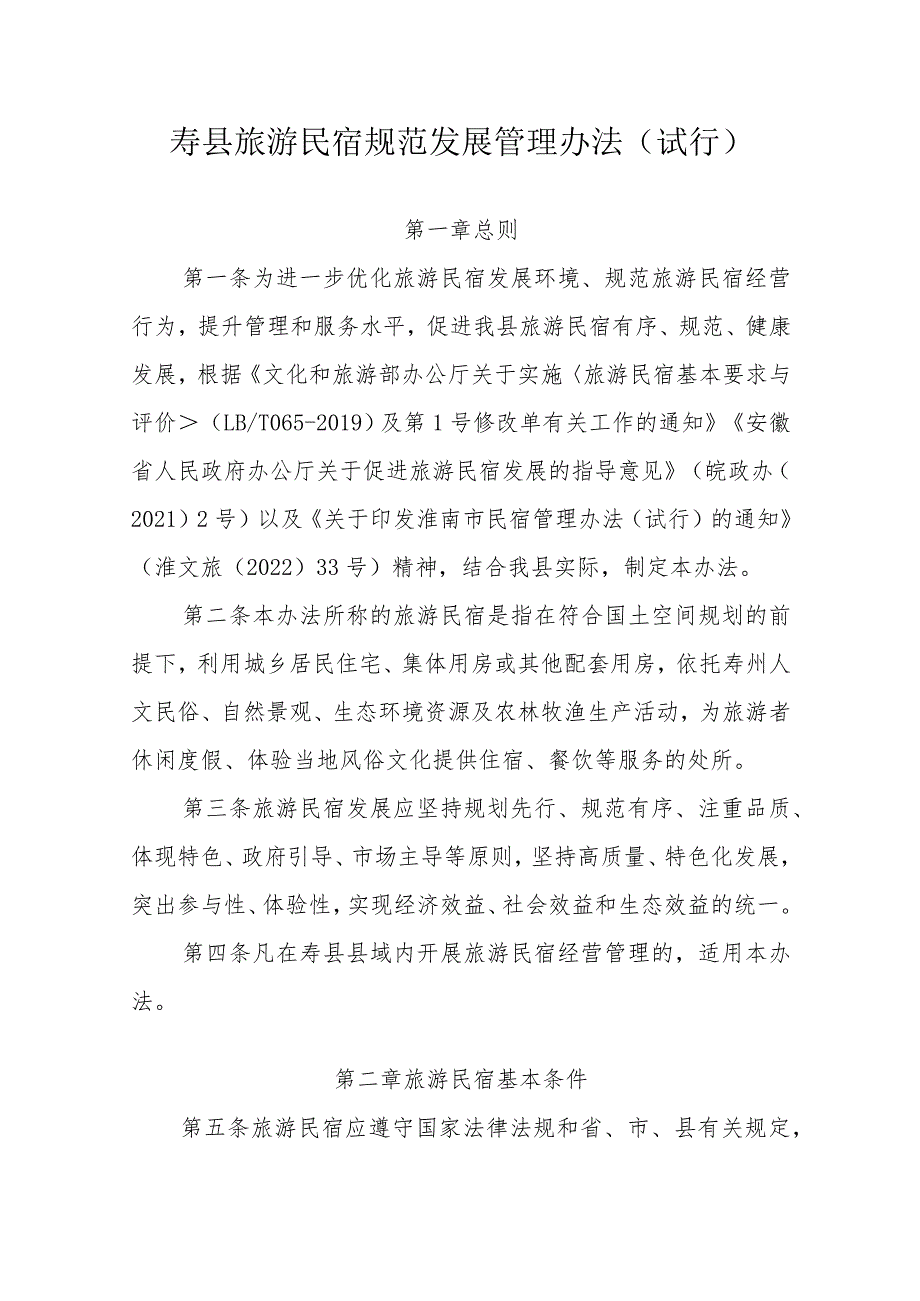 寿县旅游民宿规范发展管理办法（试行）
第一章总则
第一条为进一步优化旅游民宿发展环境、规范旅游民宿经营
行为，提升管理和服务水平，促进我县旅游民宿有序、规范、健康
发展，根据《文化和旅游部办公厅关于实施〈旅游民宿基本要求与
评价＞（LB/T065-2019）及第1号修改单有关工作的通知》《安徽
省人民政府办公厅关于促进旅游民宿发展的指导意见》（皖政办（
2021）2号）以及《关于印发淮南市民宿管理办法（试行）的通知》
（淮文旅（2022）33号）精神，结合我县实际，制定本办法。
第二条本办法所称的旅游民宿是指在符合国土空间规划的前
提下，利用城乡居民住宅、集体用房或其他配套用房，依托寿州人
文民俗、自然景观、生态环境资源及农林牧渔生产活动，为旅游者
休闲度假、体验当地风俗文化提供住宿、餐饮等服务的处所。
第三条旅游民宿发展应坚持规划先行、规范有序、注重品质、
体现特色、政府引导、市场主导等原则，坚持高质量、特色化发展，
突出参与性、体验性，实现经济效益、社会效益和生态效益的统一。
第四条凡在寿县县域内开展旅游民宿经营管理的，适用本办
法。
第二章旅游民宿基本条件
第五条旅游民宿应遵守国家法律法规和省、市、县有关规定，